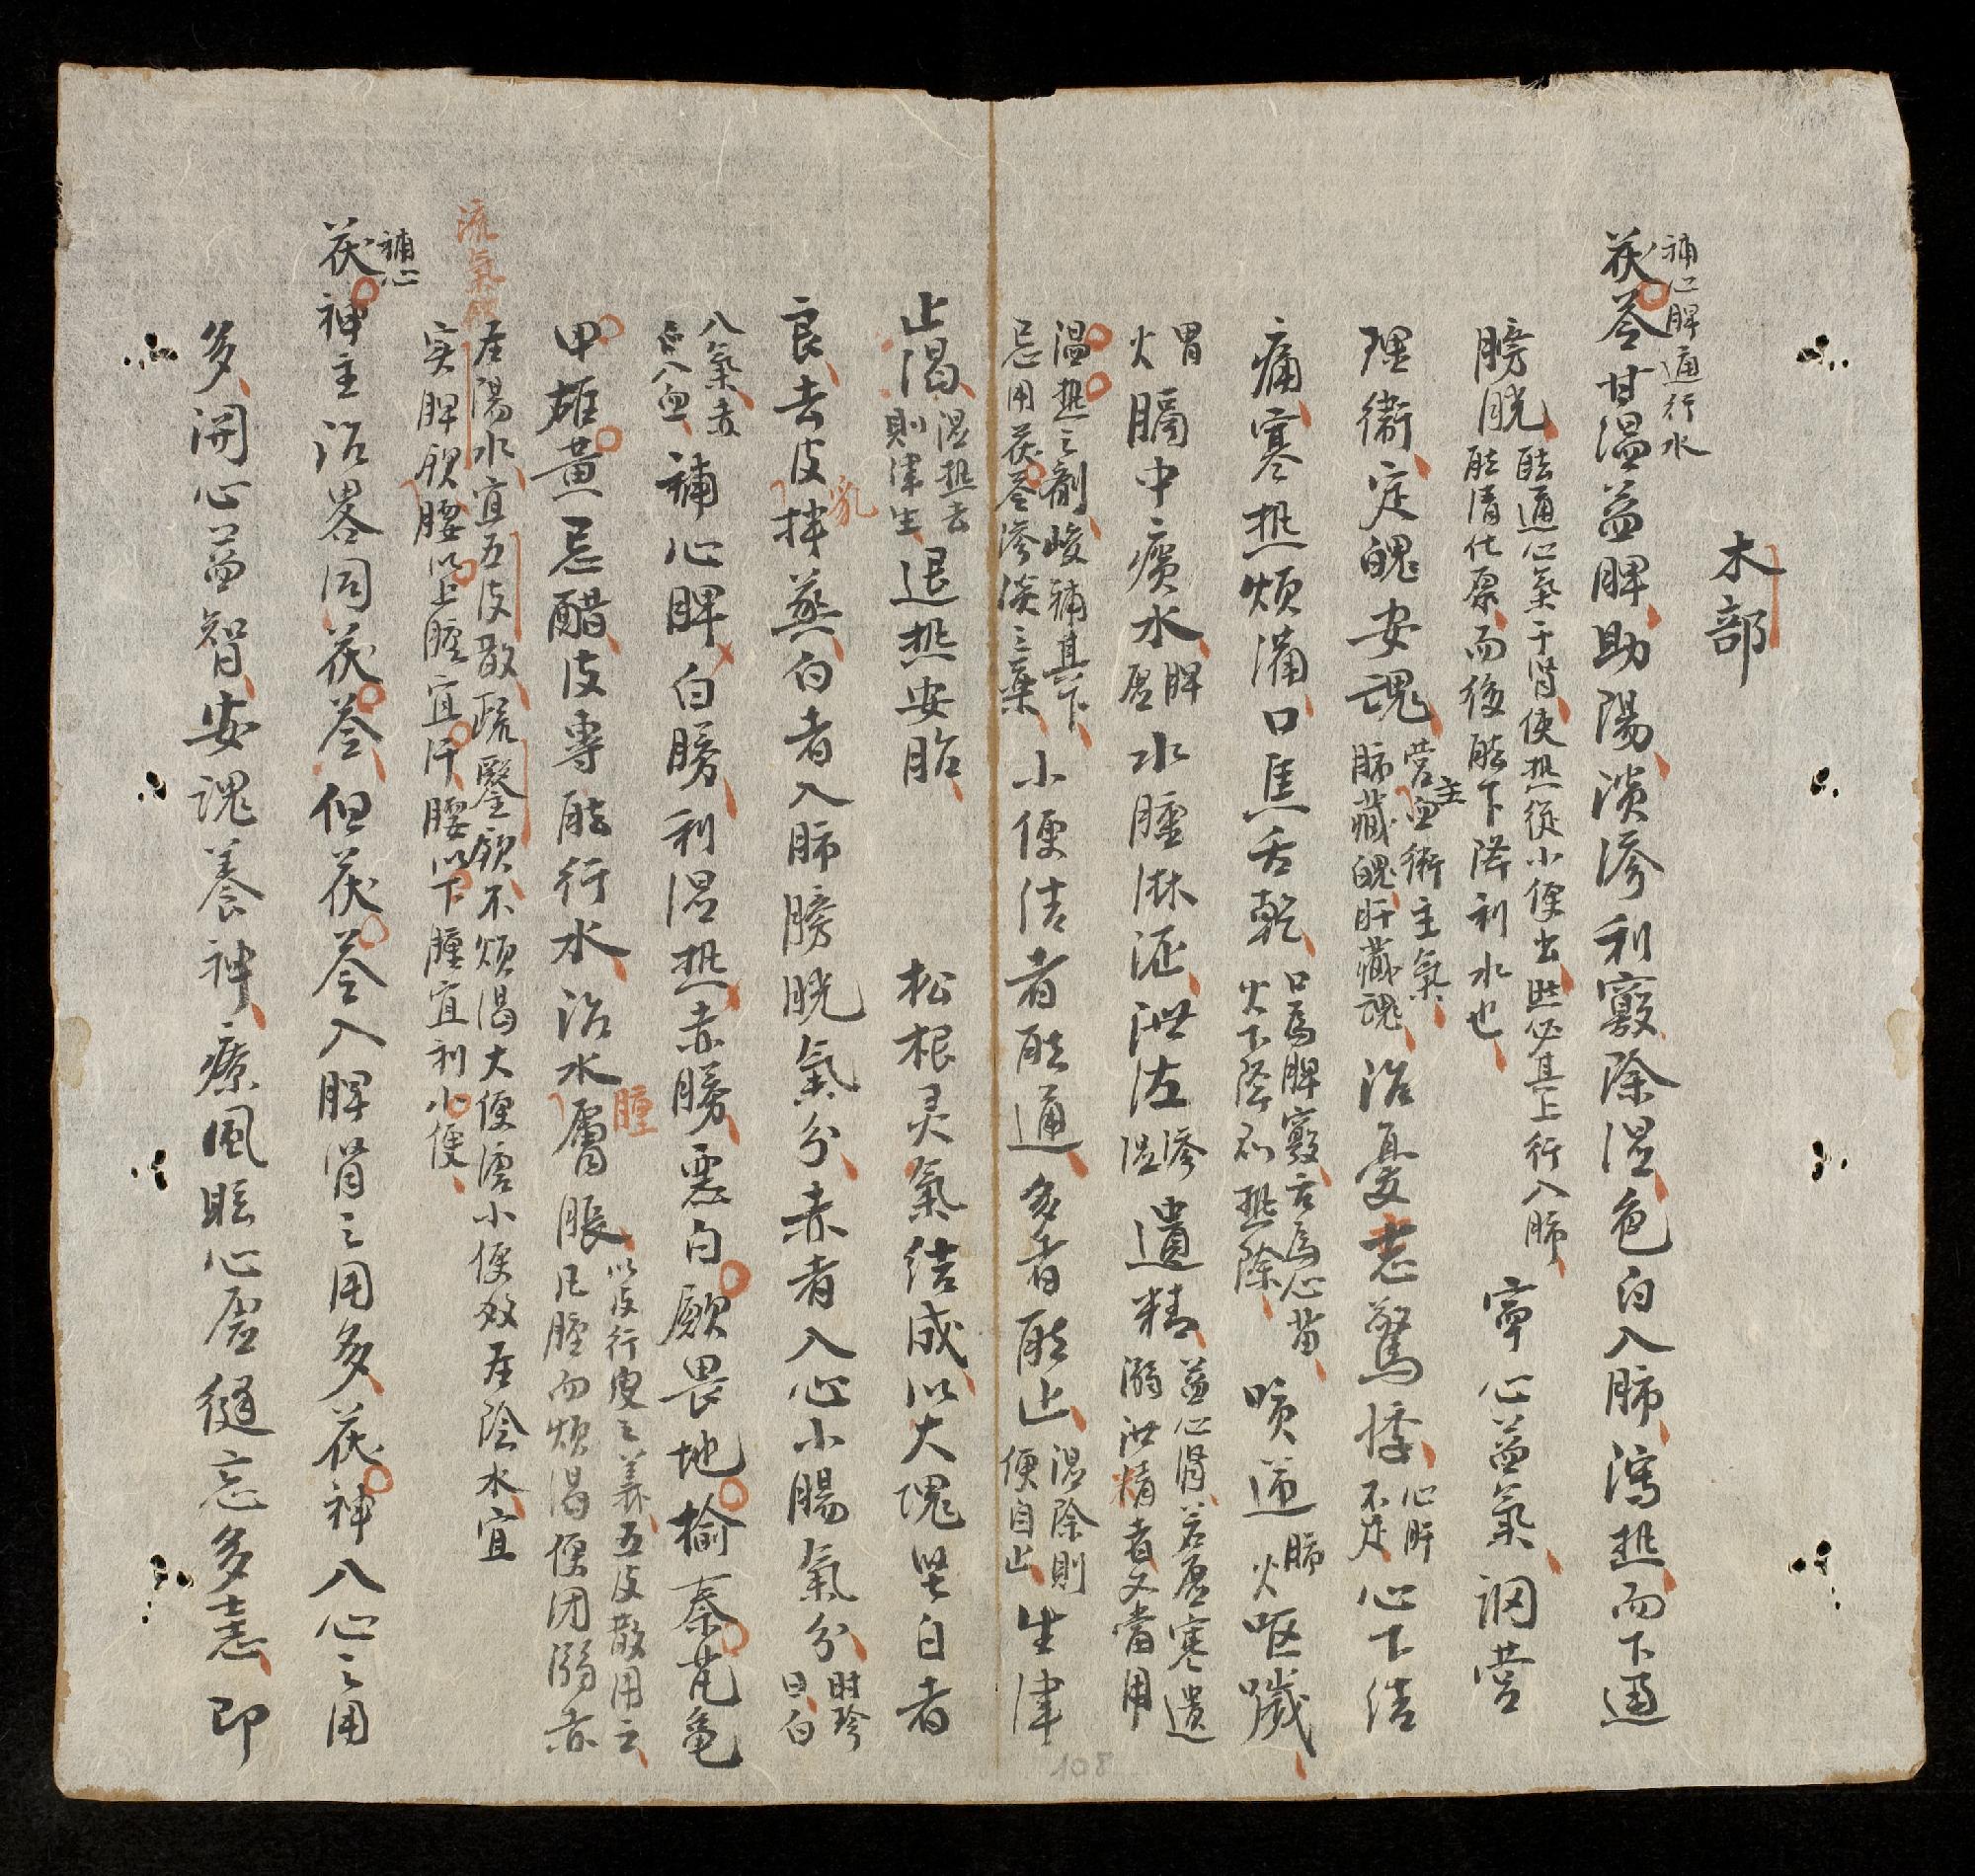 木部
補心脾通行水
茯苓甘温益脾助陽淡滲利竅除湿色白入肺瀉热而下通
膀胱能通心氣于腎使热從小便出然必其上行入肺
能清化原而後能下降利水也寧心益氣调营
理衛定魄安魂营主血衛主氣
肺藏魄肝藏魂治憂恚驚悸心肝
不足心下结
痛寒热烦满口焦舌乾口為脾竅舌為心苗
火下降则热除咳逆肺
火呕噦
胃
火膈中痰水脾
虚水腫淋沥泄泻滲
湿遺精益心腎若虚寒遺
溺泄精者又當用
温热之劑峻補其下
忌用茯苓滲淡之藥小便结者能通多者能止湿除則
便自止生津
止渴湿热去
則津生退热安胎　松根灵氣结成以大塊坚白者
良去皮乳拌蒸白者入肺膀胱氣分赤者入心小腸氣分时珍
曰白
入氣赤
入血補心脾白勝利湿热赤勝惡白蘞畏地榆秦艽龟
甲雄黄忌醋皮專能行水治水腫膚脹以皮行皮之義五皮散用之
凡腫而烦渴便闭溺赤
流氣飲
在陽水宜五皮散疏鑿飲不烦渴大便溏小便数在陰水宜
实脾飲腰以上腫宜汗腰以下腫宜利小便
補心
茯神主治畧同茯苓但茯苓入脾腎之用多茯神入心之用
多開心益智安魂養神療風眩心虚健忘多恚即
108